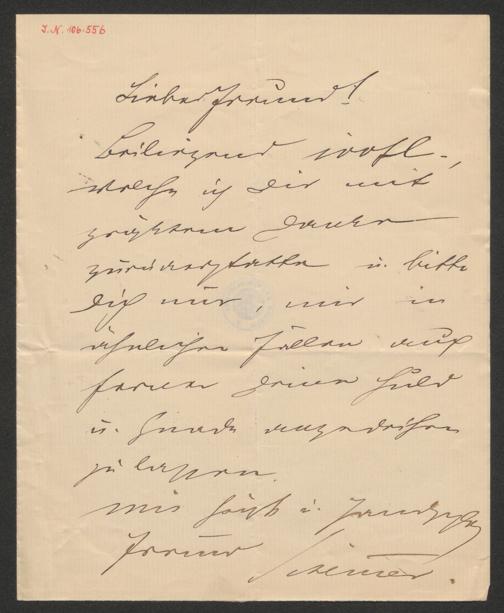 J.N. 106.556
Lieber Freund!
Beiliegend
welche ich Dir mit
größtem Danke
zurückerstatte u. bitte
Dich nur, mir in
ähnlichen Fällen auch
ferner Deine Huld
u. Gnade angedeihen
zu lassen.
u.
Freund